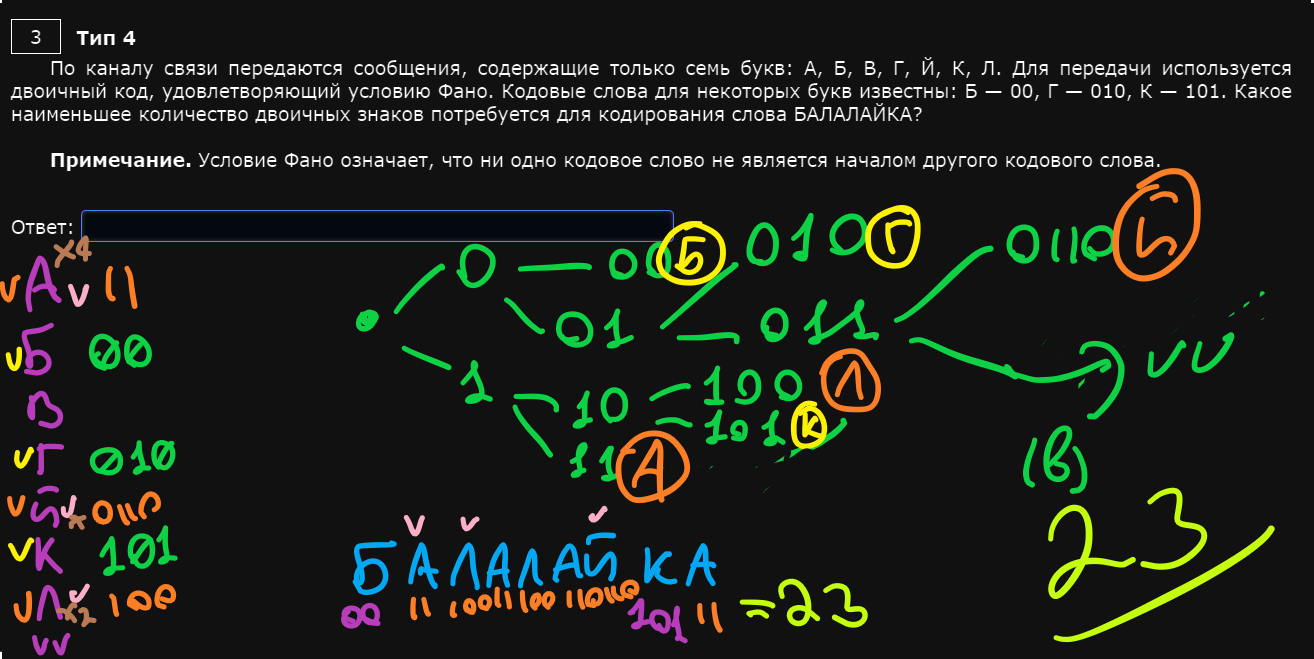 3 Тип 4
По каналу связи передаются сообщения, содержащие только семь букв: А, Б, В, Г, Й, К, Л. Для передачи используется
двоичный код, удовлетворяющий условию Фано. Кодовые слова для некоторых букв известны: Б — 00, Г — 010, К — 101. Какое
наименьшее количество двоичных знаков потребуется для кодирования слова БАЛАЛАЙКА?
Примечание. Условие Фано означает, что ни одно кодовое слово не является началом другого кодового слова.
Ответ:
А x4 11
Б 00
В
Г 010
Й 0110
К 101
Л x2 100
0 00 Б 010 Г 0110 Й
01 011
1 10 100 Л
101 К
11 А
(В)
БАЛАЛАЙКА
00 11 100 11 100 11 0110 101 11 =23
23